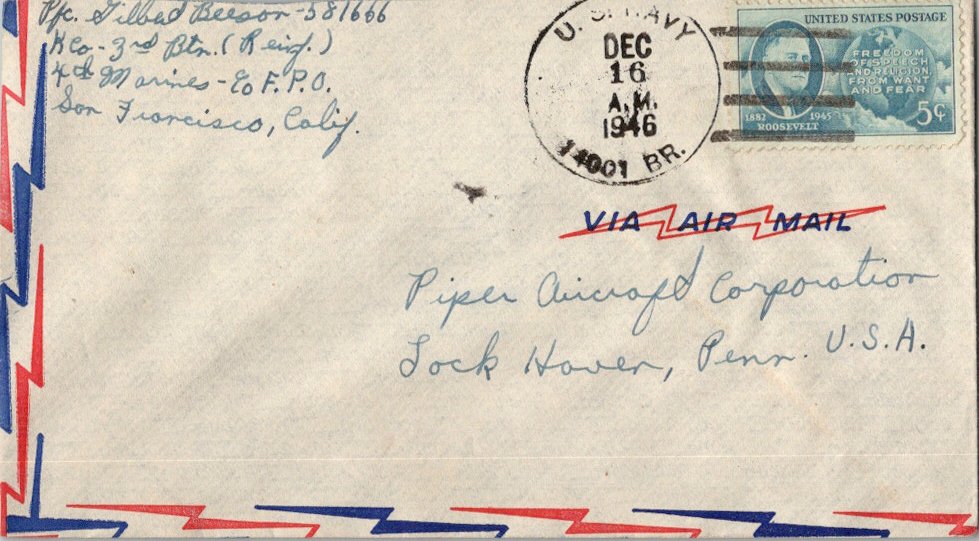 Pfc. Gilbert Beeson - 581666
K Co - 3rd Btn. (Reinf.)
4th Marines - C/o F.P.O.
San Francisco, Calif.
U. S. NAVY
DEC
16
A.M.
1946
14001 BR.
UNITED STATES POSTAGE
FREEDOM
OF SPEECH
AND RELIGION
FROM WANT
AND FEAR
1882 1945
ROOSEVELT
5¢
VIA AIR MAIL
Piper Aircraft Corporation
Lock Haven, Penn. U.S.A.